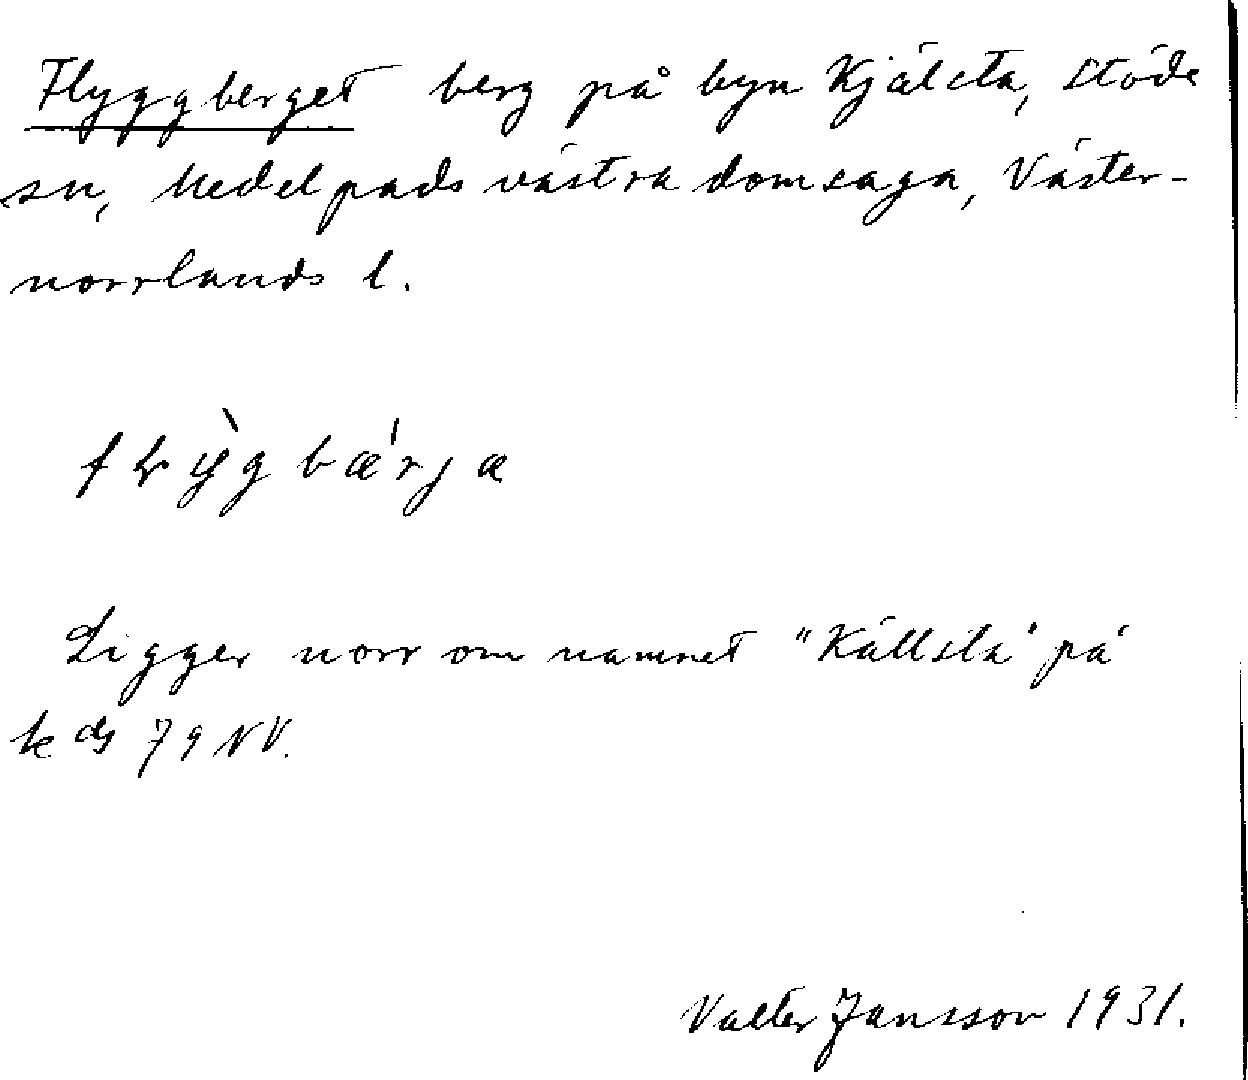 Flyggberget berg på byn Kjälsta, Stöde
sn, Medelpads västra domsaga, Väster-
norrlands l.
Ligger norr om namnet "Källsta" på
kbl 79 NV.
Valter Jansson 1931.